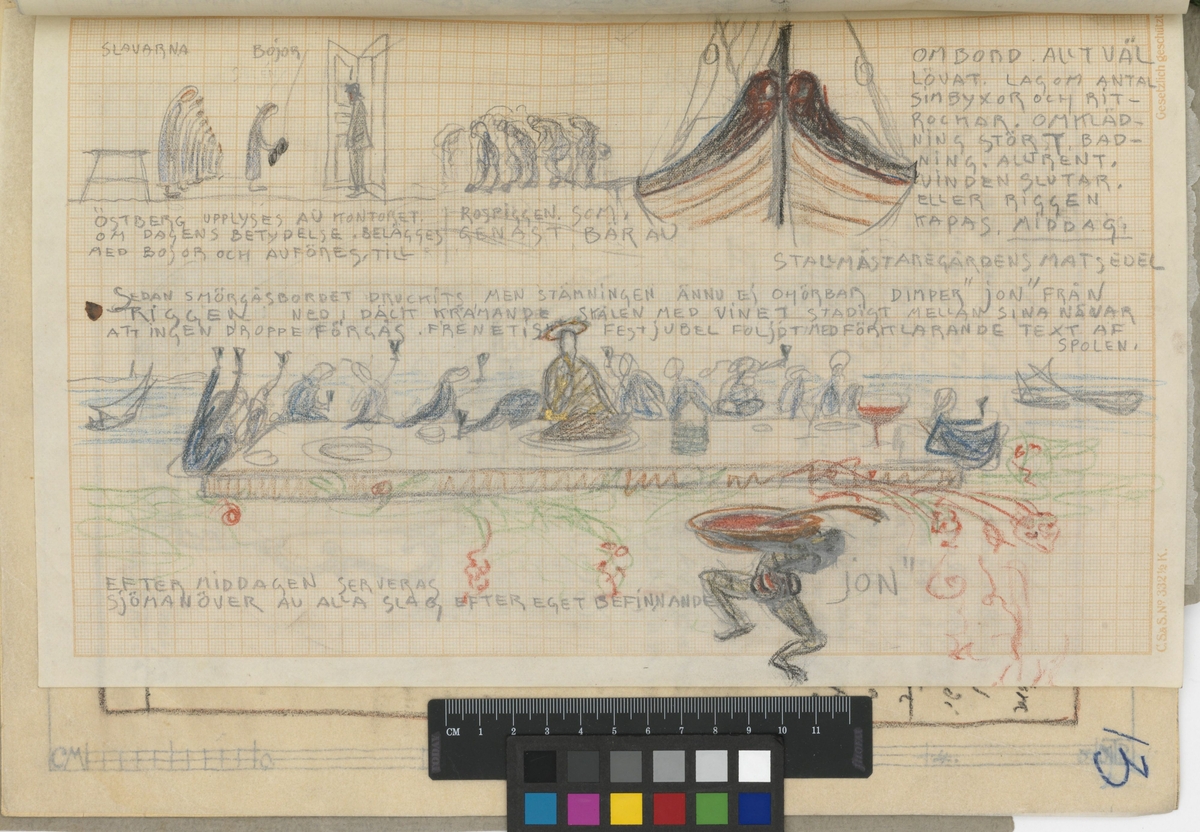 SLAVARNA BOJOR
OMBORD. ALLT VÄL
LÖVAT. LAGOM ANTAL
SIMBYXOR OCH RIT-
ROCKAR. OMKLÄD-
NING STÖRT BAD-
NING. ALLT RENT.
VINDEN SLUTAR.
ELLER RIGGEN
KAPAS. MIDDAG:
ÖSTBERG UPPLYSES AV KONTORET.
OM DAGENS BETYDELSE. BELÄGGES
MED BOJOR OCH AVFÖRES, TILL
ROSPIGGEN. SOM,
GENAST BÄR AV
STALLMÄSTAREGÅRDENS MATSEDEL
SEDAN SMÖRGÅSBORDET DRUCKITS MEN STÄMNINGEN ÄNNU EJ OHÖRBAR DIMPER "JON" FRÅN
RIGGEN NED I DÄCK KRAMANDE SKÅLEN MED VINET STADIGT MELLAN SINA NÄVAR
ATT INGEN DROPPE FÖRGÅS. FESTJUBEL FÖLJDT MED FÖRKLARANDE TEXT AF
SPOLEN.
JON"
EFTER MIDDAGEN SERVERAS
SJÖMANÖVER AV ALLA SLAG, EFTER EGET BEFINNANDE
Gesetzlich geschützt
C. S & S. Nº 332 ½ R.
CM 1 2 3 4 5 6 7 8 9 10 11
CM